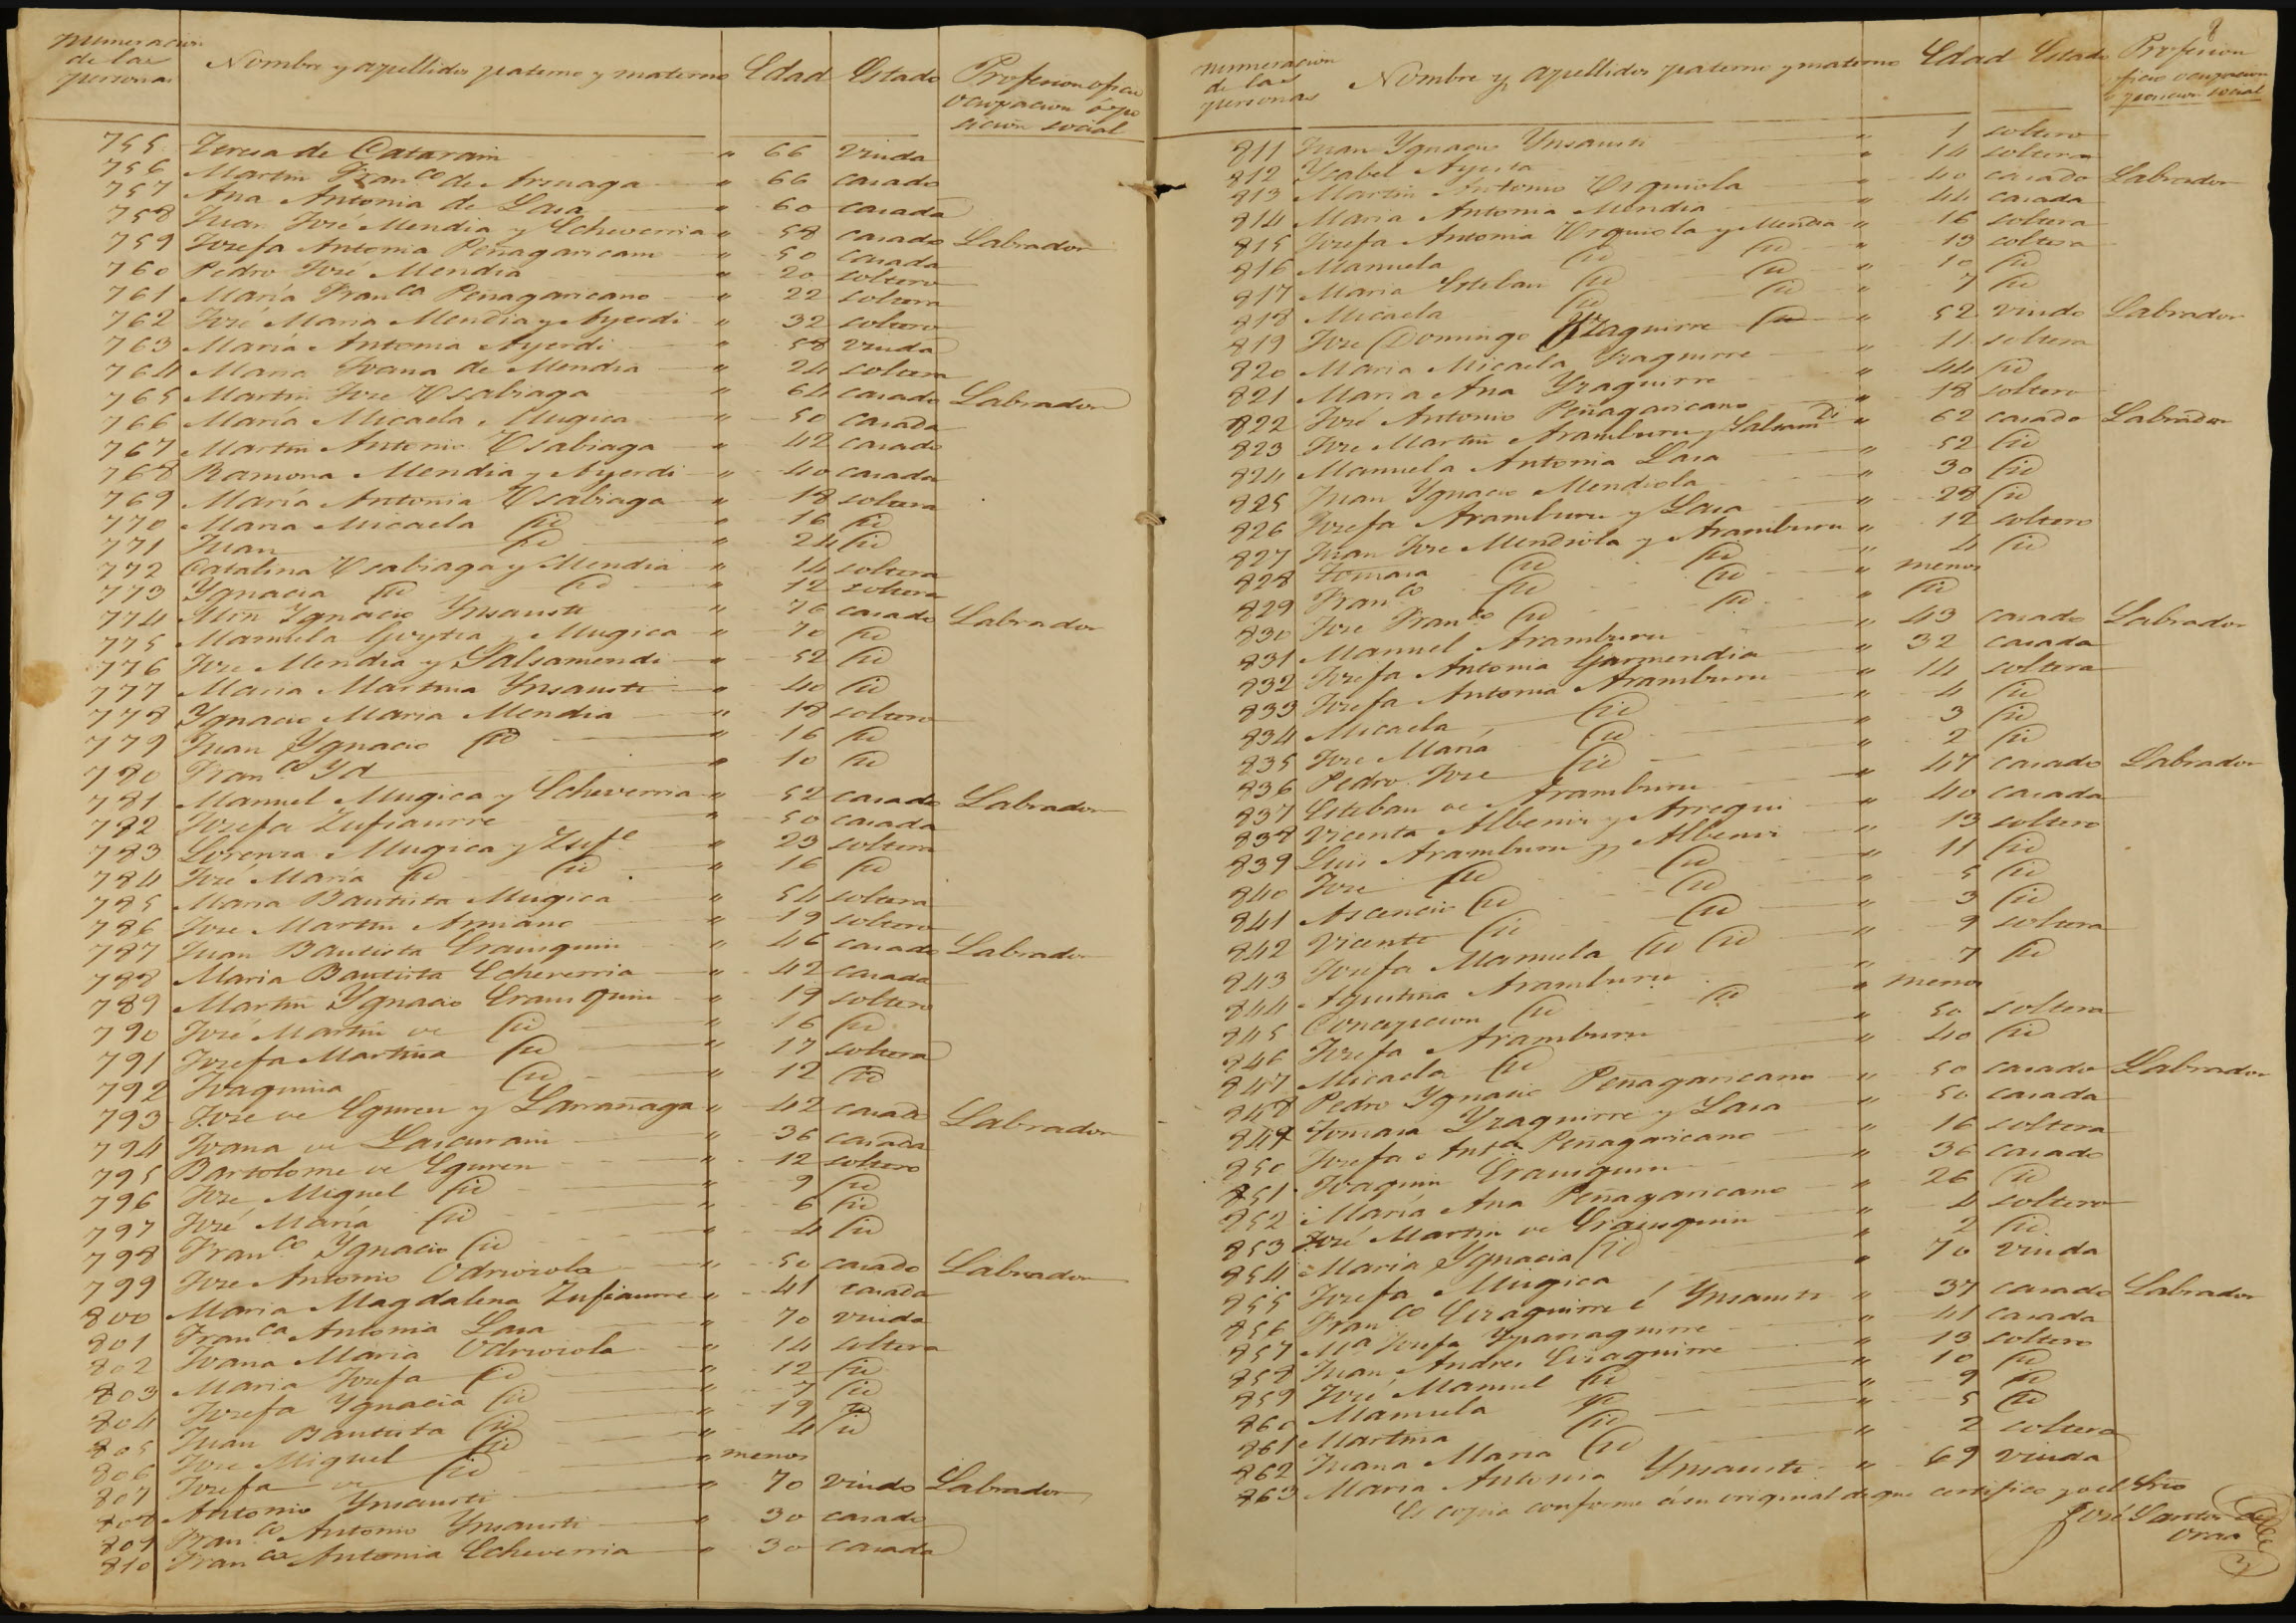 Numeracion de las personas Nombre y apellidos paterno y materno Edad Estado Profesion oficio ocupacion ó posicion social
755 Teresa de Catarain " 66 viuda
756 Martin Fran.co de Arsuaga " 66 casado
757 Ana Antonia de Lasa " 60 casada
758 Juan José Mendia y Echeverria " 58 casado Labrador
759 Josefa Antonia Peñagaricano " 50 casada
760 Pedro José Mendia " 20 soltero
761 María Fran.ca Peñagaricano " 22 soltera
762 José Maria Mendia y Ayerdi " 32 soltero
763 María Antonia Ayerdi " 58 viuda
764 Maria Juana de Mendia " 24 soltera
765 Martin José Usabiaga " 64 casado Labrador
766 María Micaela Mugica " 50 casada
767 Martin Antonio Usabiaga " 42 casado
768 Ramona Mendia y Ayerdi " 40 casada
769 María Antonia Usabiaga " 18 soltera
770 Maria Micaela id " 16 id
771 Juan id " 24 id
772 Catalina Usabiaga y Mendia " 14 soltera
773 Ygnacia id id " 12 soltera
774 Mrn Ygnacio Ynsausti " 76 casado Labrador
775 Manuela Goytia y Mugica " 70 id
776 José Mendia y Salsamendi " 52 id
777 Maria Martina Ynsausti " 40 id
778 Ygnacio Maria Mendia " 18 soltero
779 Juan Ygnacio id " 16 id
780 Fran.co Yd " 10 id
781 Manuel Mugica y Echeverria " 52 casado Labrador
782 Josefa Zufiaurre " 50 casada
783 Lorenza Mugica y Zuf.e " 23 soltera
784 José María id id " 16 id
785 Maria Bautista Mugica " 54 soltera
786 Jose Martin Amiano " 19 soltero
787 Juan Bautista Erausquin " 46 casado Labrador
788 Maria Bautista Echeverria " 42 casada
789 Martin Ygnacio Erausquin " 19 soltero
790 José Martin de id " 16 id
791 Josefa Martina id " 17 soltera
792 Joaquina id " 12 id
793 Jose de Eguren y Larrañaga " 42 casado Labrador
794 Juana de Lascurain " 36 casada
795 Bartolome de Eguren " 12 soltero
796 Jose Miguel id " 9 id
797 José María id " 6 id
798 Fran.co Ygnacio id " 4 id
799 Jose Antonio Odriozola " 50 casado Labrador
800 Maria Magdalena Zufiaurre " 41 casada
801 Fran.ca Antonia Lasa " 70 viuda
802 Juana Maria Odriozola " 14 soltera
803 Maria Josefa id " 12 id
804 Josefa Ygnacia id " 7 id
805 Juan Bautista id " 19 id
806 Jose Miguel id " 4 id
807 Josefa de id " menor
808 Antonio Ynsausti " 70 viudo Labrador
809 Fran.co Antonio Ynsausti " 30 casado
810 Fran.ca Antonia Echeverria " 30 casada
8
Numeracion de las personas Nombre y apellidos paterno y materno Edad Estado Profesion oficio ocupacion posicion social
811 Juan Ygnacio Ynsausti " 1 soltero
812 Ysabel Ayesta " 14 soltera
813 Martin Antonio Urquiola " 40 casado Labrador
814 Maria Antonia Mendia " 44 casada
815 Josefa Antonia Urquiola y Mendia " 16 soltera
816 Manuela id id " 13 soltera
817 Maria Esteban id id " 10 id
818 Micaela id id " 7 id
819 Jose Domingo Yzaguirre id " 52 viudo Labrador
820 Maria Micaela Yzaguirre " 11 soltera
821 Maria Ana Yzaguirre " 44 id
822 José Antonio Peñagaricano " 18 soltero
823 Jose Martin Aramburu y Salsam.di " 62 casado Labrador
824 Manuela Antonia Lasa " 52 id
825 Juan Ygnacio Mendiola " 30 id
826 Josefa Aramburu y Lasa " 28 id
827 Juan Jose Mendiola y Aramburu " 12 soltero
828 Tomasa id id " 4 id
829 Fran.co id id " menor
830 Jose Fran.co id id " id
831 Manuel Aramburu " 43 casado Labrador
832 Josefa Antonia Garmendia " 32 casada
833 Josefa Antonia Aramburu " 14 soltera
834 Micaela id " 4 id
835 Jose María id " 3 id
836 Pedro Jose id " 2 id
837 Esteban de Aramburu " 47 casado Labrador
838 Vicenta Albeniz y Arregui " 40 casada
839 Luis Aramburu y Albeniz " 13 soltero
840 Jose id id " 11 id
841 Ascencio id id " 5 id
842 Vicente id id " 3 id
843 Josefa Manuela id id " 9 soltera
844 Agustina Aramburu " 7 id
845 Concepcion id id " menor
846 Josefa Aramburu " 50 soltera
847 Micaela id " 40 id
848 Pedro Ygnacio Peñagaricano " 50 casado Labrador
849 Tomasa Yzaguirre y Lasa " 50 casada
850 Josefa Ant.a Peñagaricano " 16 soltera
851 Joaquin Erausquin " 36 casado
852 María Ana Peñagaricano " 26 id
853 José Martin de Erausquin " 4 soltero
854 Maria Ygnacia id " 2 id
855 Josefa Mugica " 70 viuda
856 Fran.co Eizaguirre é Ynsausti " 37 casado Labrador
857 M.a Josefa Yparraguirre " 41 casada
858 Juan Andres Eizaguirre " 13 soltero
859 José Manuel id " 10 id
860 Manuela id " 9 id
861 Martina id " 5 id
862 Juana Maria id " 2 soltera
863 Maria Antonia Ynsausti " 69 viuda
Es copia conforme á su original de que certifico yo el Srio
José Santos de